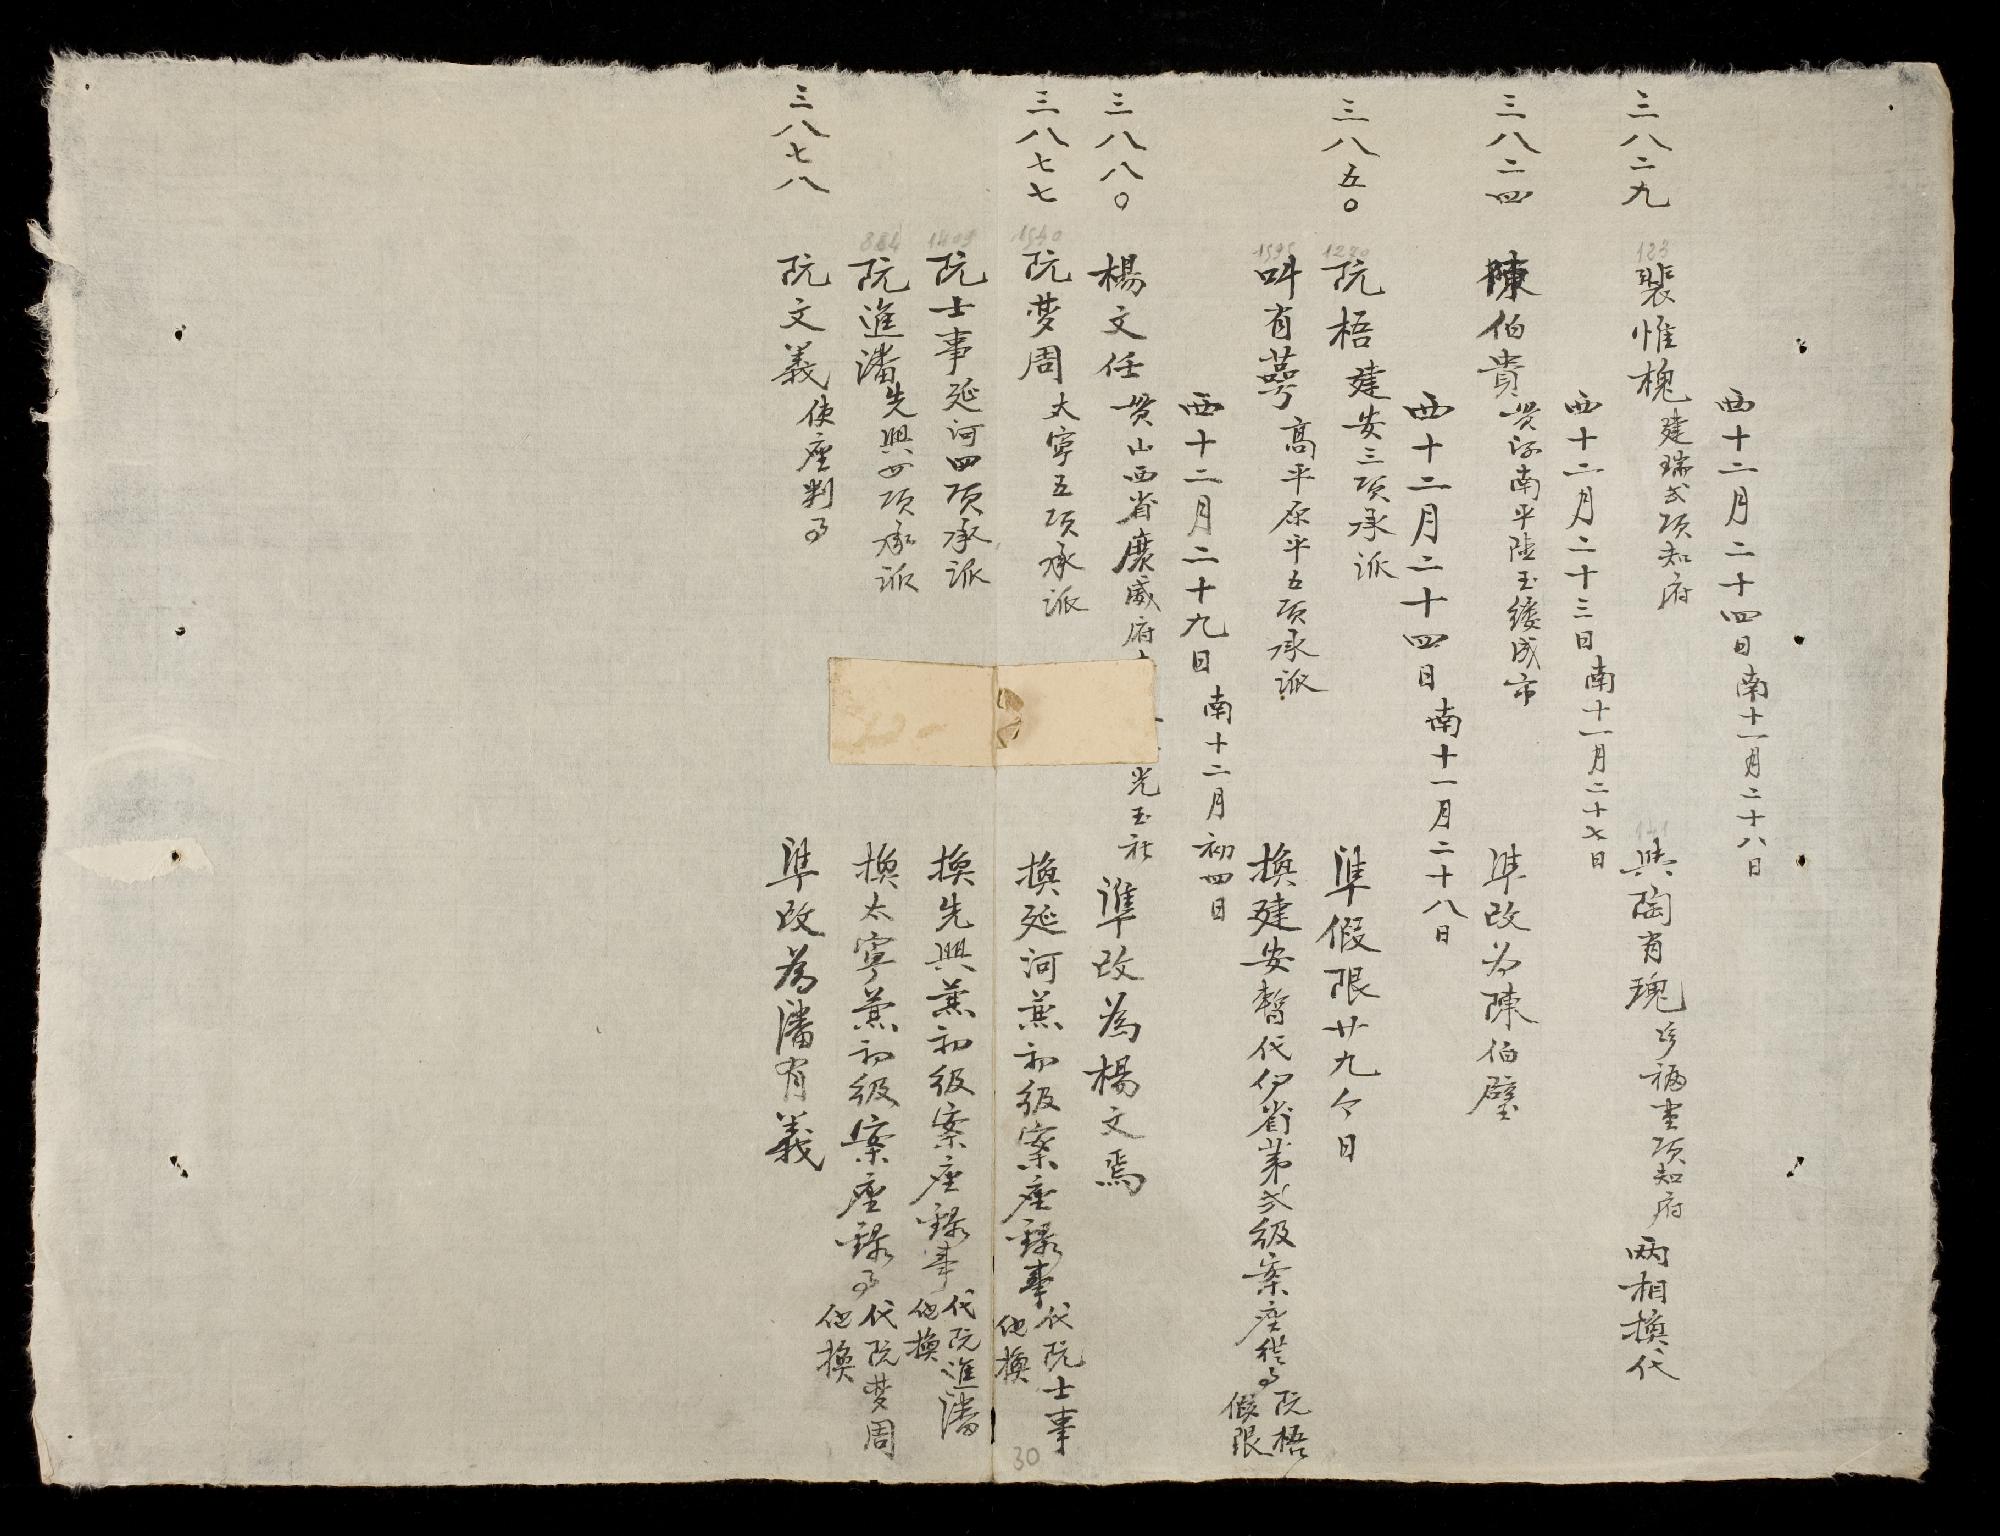 西十二月二十四日南十一月二十八日
三八二九
裴惟槐建瑞弍項知府
與陶有瑰安福壹項知府兩相換代
西十二月二十三日南十一月二十七日
三八二四
陳伯貴貫河南平陸玉縷成市
準改為陳伯璧
西十二月二十四日南十一月二十八日
三八五〇
阮梧建安三項承派
準假限廿九个日
叫有蕚高平原平五項承派
換建安暫代伊省第弍級案座從事阮梧假限
西十二月二十九日南十二月初四日
三八八〇
楊文任貫山西省廣威府
光玉社
準改為楊文焉
三八七七
阮夢周太寧五項承派
換延河兼初級案座錄事代阮士事他換
阮士事延河四項承派
換先興兼初級案座錄事代阮進潘他換
阮進潘先興四項承派
換太寧兼初級案座錄事代阮夢周他換
三八七八
阮文義使座判事
準改為潘有義
30